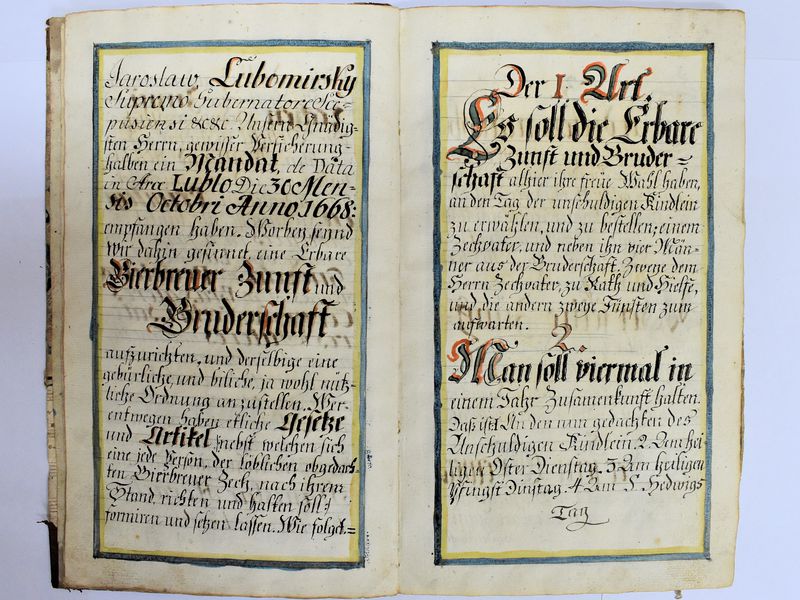 Jaroslaw Lubomirsky
Supremo Gubernatore Sce-
pusiensi &c&c. Unsern Gnädig-
sten Herrn, gewisser Versicherung
halben ein Mandat, de Data
in Arce Lublo Die 30 Men-
sis Octobri Anno 1668:
empfangen haben. Worbey sennd
wir dahin gesinnet, eine Erbare
Bierbreuer Zunft und
Bruderschaft
aufzurichten, und derselbige eine
gebürliche, und biliche, ja wohl nütz-
liche Ordnung anzustellen. Wer-
entwegen haben etliche Gesetze
und Artikel, nebst welchen sich
eine jede Person, der löblichen obgedach-
ten Bierbreuer Zech, nach ihrem
Stand, richten und halten soll,
formiren und setzen lassen. Wie folget.=
Der 1 Art.
Es soll die Erbare
Zunft und Bruder=
schaft alhier ihre freüe Wahl haben,
an den Tag der unschuldigen Kindlein
zu erwählen, und zu bestellen; einem
Zechvater, und neben ihn vier Män-
ner aus der Bruderschaft. Zweye dem
Herrn Zechvater, zu Rath und Hielfe,
und die andern zweye Fürsten zum
aufwarten.
2.
Man soll viermal in
einem Jahr Zusamenkunft halten.
Deß ist 1 An den nun gedachten des
Unschuldigen Kindlein 2 Am hei-
ligen Oster Dienstag. 3 Am heiligen
Pfingst Dinstag. 4 Am S. Hedwigs
Tag